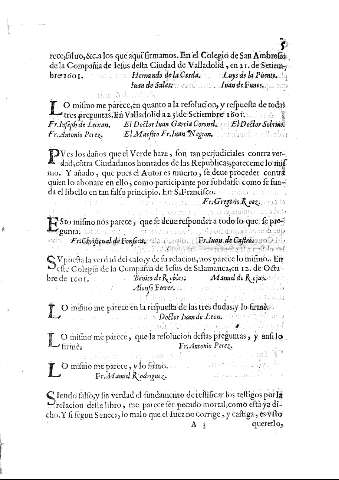 5
rece, saluo, &c. a los que aqui firmamos. En el Colegio de San Ambrosio
de la Compañia de Iesus desta Ciudad de Valladolid, en 21. de Setiem-
bre 1605. Hernando de la Cerda. Luys de la Puente.
Iuan de Salas. Iuan de Fuses.
LO mismo me parece, en quanto a la resolucion, y respuesta de todas
tres preguntas. En Valladolid 22. de Setiembre 1605.
Fr. Ioseph de Luxan. El Doctor Iuan Garcia Coronel. El Doctor Sobrino.
Fr. Antonio Perez. El Maestro Fr. Iuan Negron.
PVes los daños que el Verde haze, son tan perjudiciales contra ver-
dad, cõtra Ciudadanos honrados de las Republicas, pareceme lo mis
mo. Y añado, que pues el Autor es muerto, se deue proceder contra
quien lo abonare en ello, como participante por fundarse como se fun-
da el libello en tan falso principio. En S. Francisco.
Fr. Gregorio Ruyz.
ESto mismo nos parece, que se deue responder a todo lo que se pre-
gunta. Fr. Christoual de Fonseca. Fr. Iuan de Castro.
SVpuesta la verdad del caso, y de su relacion, nos parece lo mismo. En
este Colegio de la Compañia de Iesus de Salamanca, en 12. de Octu-
bre de 1605. Benito de Robles. Manuel de Rojas.
Alonso Ferrer.
LO mismo me parece en la respuesta de las tres dudas, y lo firmè.
Doctor Iuan de Leon.
LO mismo me parece, que la resolucion destas preguntas, y ansi lo
firmè. Fr. Antonio Perez.
LO mismo me parece, y lo firmo.
Fr. Manuel Rodriguez.
SIendo falso, y sin verdad el fundamento de testificar los testigos por la
relacion deste libro, me parece ser pecado mortal, como està ya di-
cho. Y si segun Seneca, lo malo que el Iuez no corrige, y castiga, es visto
A 3 quererlo,